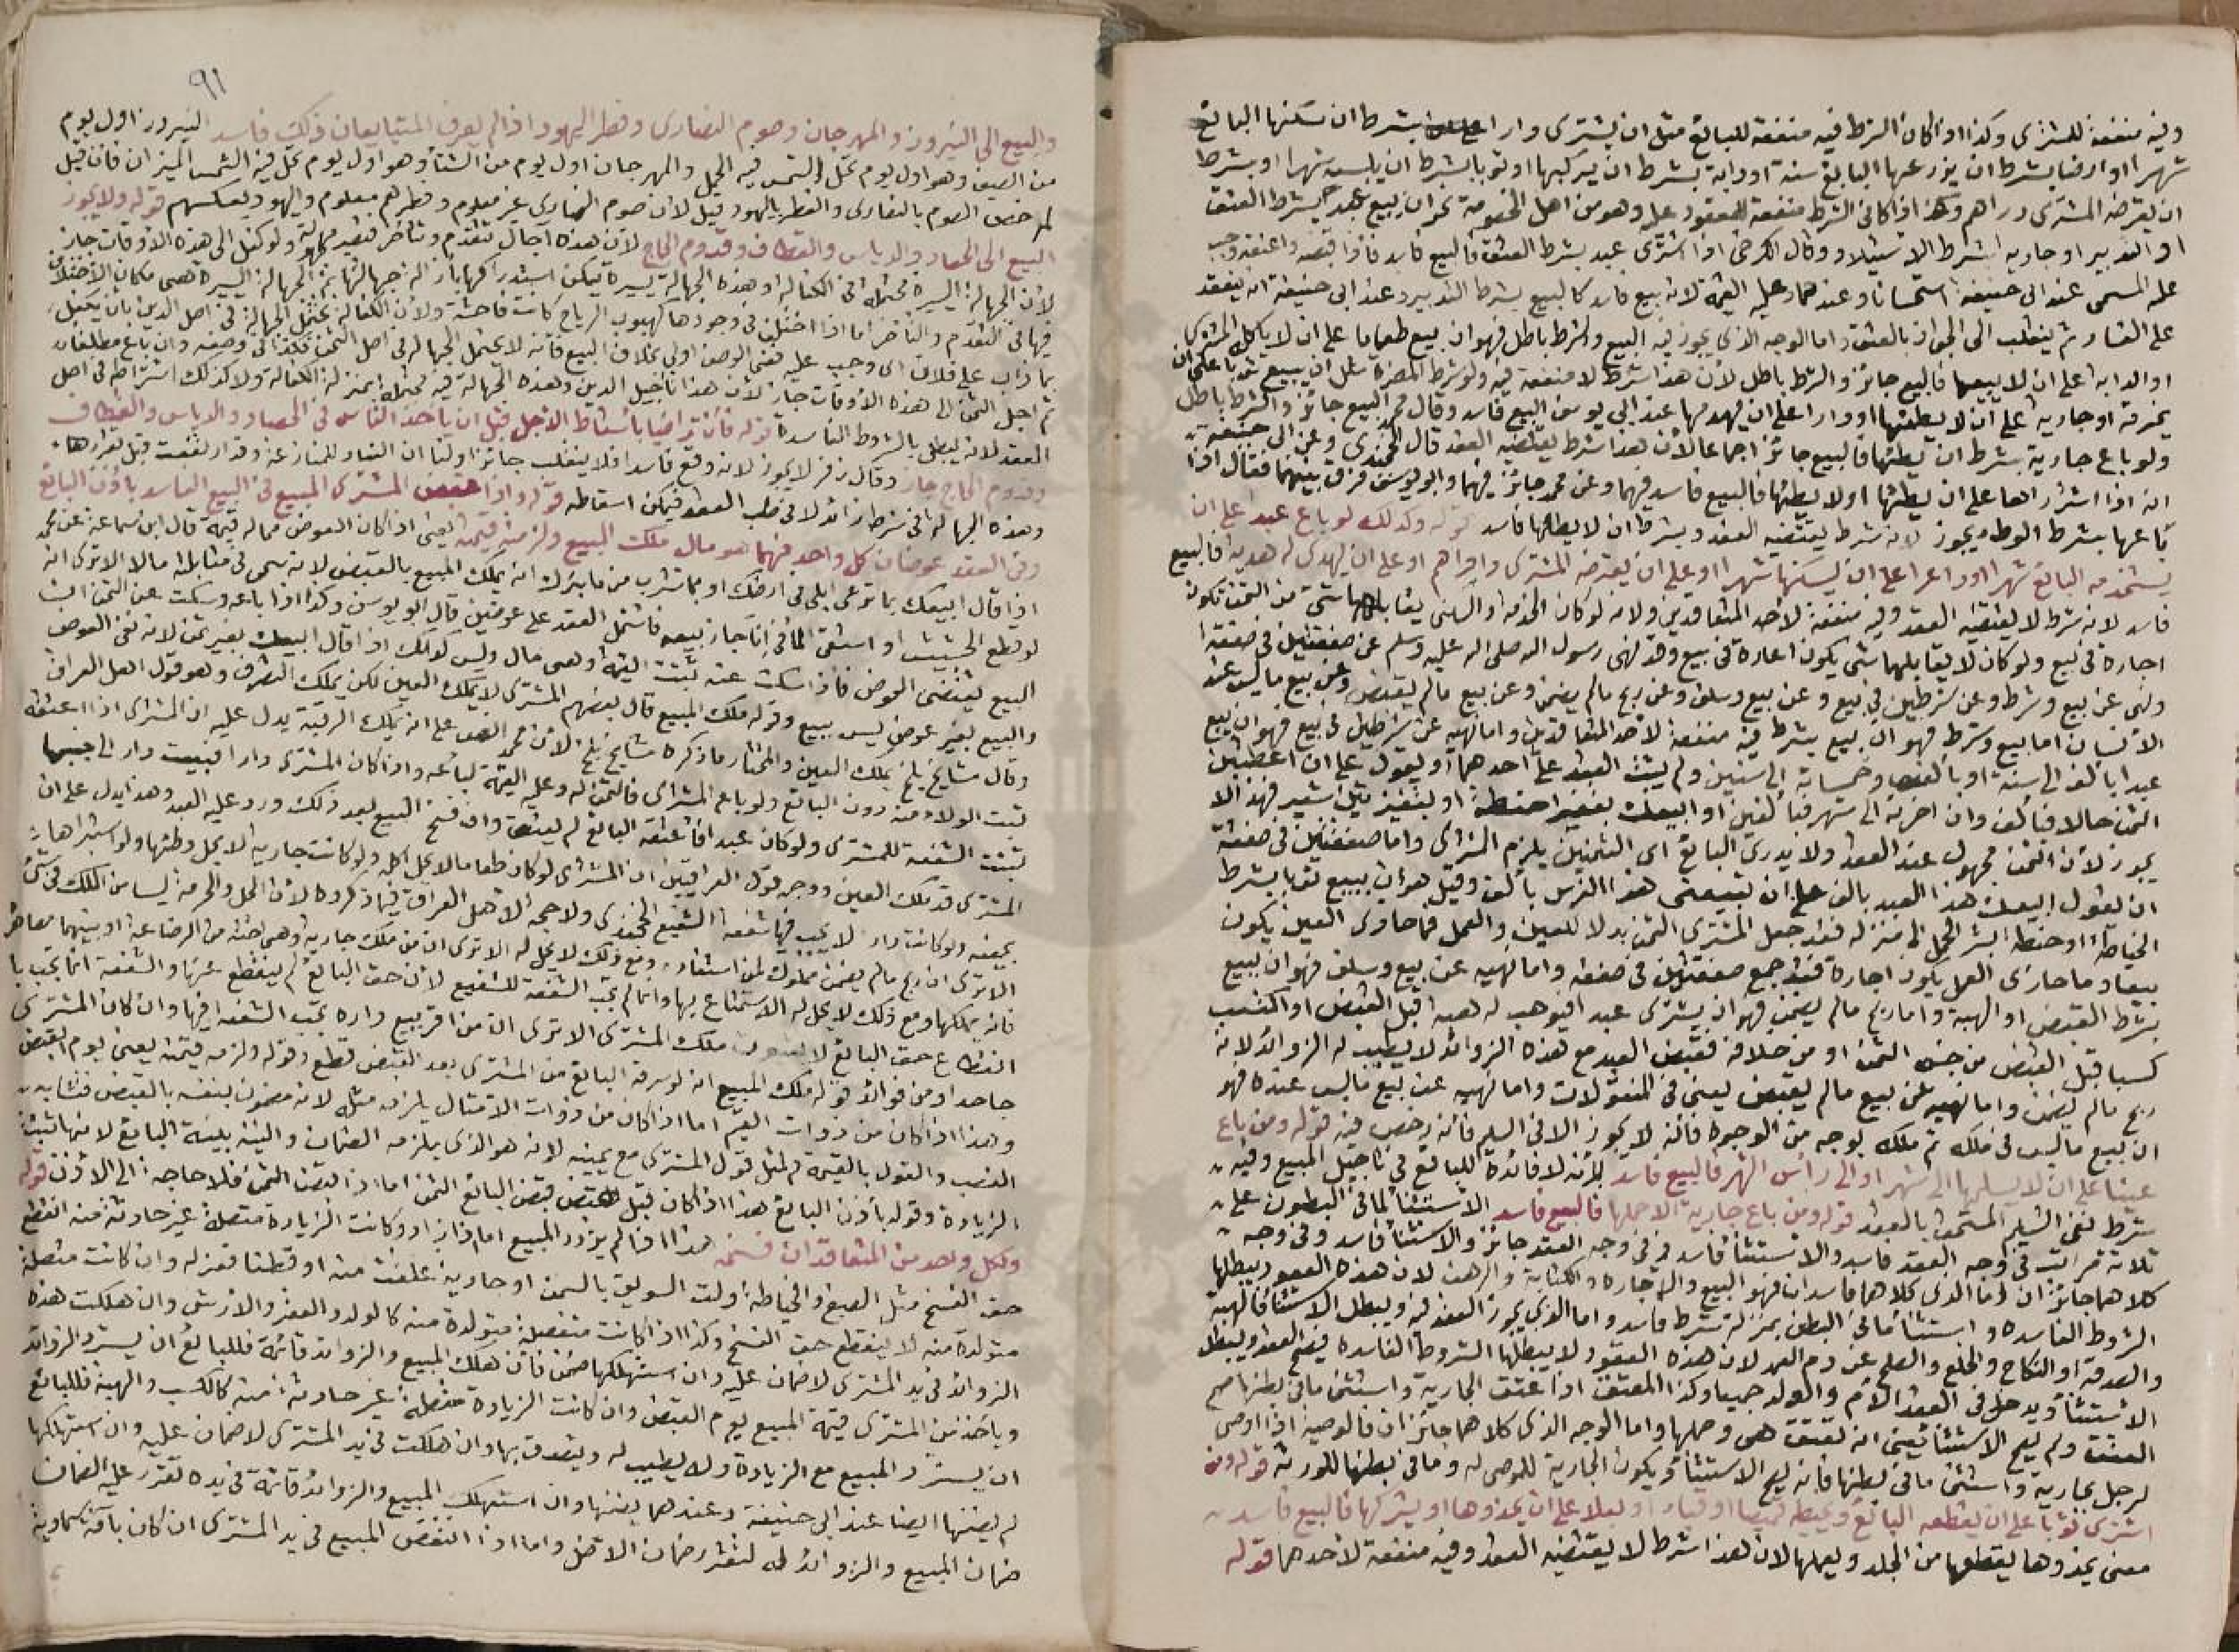 وفيه منفعة للمشتري وكذا اذا كان الشرط فيه منفعة للبائع مثل ان يشتري دارا على بشرط ان يسكنها البائع
شهرا او ارضا بشرط ان يزرعها البائع سنة او دابة بشرط ان يركبها او ثوبا بشرط ان يلبسه شهرا او بشرط
ان يقرضه المشتري دراهم وكذا اذا كان الشرط منفعة للمعقود عليه وهو من اهل الخصومة نحو ان يبيع عبد بشرط العتق
او التدبير او جارية بشرط الاستيلاد وقال الكرخي اذا اشترى عبد بشرط العتق فالبيع فاسد فاذا قبضه واعتقه وجب
عليه المسمى عند ابي حنيفة استحسانا وعندهما عليه القيمة لانه بيع فاسد كالبيع بشرط التدبير وعند ابي حنيفة انه ينعقد
على الفساد ثم ينقلب الى الجواز بالعتق واما الوجه الذي يجوز فيه البيع والشرط باطل فهو ان يبيع طعاما على ان لا ياكله المشتري
او الدابة على ان لا يبيعها فالبيع جائز والشرط باطل لان هذا شرط لا منفعة فيه ولو شرط المضرة مثل ان يبيع ثوبا على ان
يخرقه او جارية على ان لا يطئها او دارا على ان يهدمها عند ابي يوسف البيع فاسد وقال محمد البيع جائز والشرط باطل
ولو باع جارية بشرط ان يطئها فالبيع جائز اجماعا لان هذا شرط يقتضيه العقد قال الخجندي وعن ابي حنيفة
انه اذا اشتراها على ان يطئها او لا يطئها فالبيع فاسد فيهما وعن محمد جائز فيهما وابو يوسف فرق بينهما فقال اذا
باعها بشرط الوطء يجوز لانه شرط يقتضيه العقد وبشرط ان لا يطئها فاسد قوله وكذلك لو باع عبدا على ان
يستخدمه البائع شهرا او دارا على ان يسكنها شهرا او على ان يقرضه المشتري دراهم او على ان يهدي له هدية فالبيع
فاسد لانه شرط لا يقتضيه العقد وفيه منفعة لاحد المتعاقدين ولانه لو كان الخدمة والسكنى يقابلهما شئ من الثمن يكون
اجارة في بيع ولو كان لا يقابلهما شئ يكون اعارة في بيع وقد نهى رسول الله صلى الله عليه وسلم عن صفقتين في صفقة
ونهى عن بيع وشرط وعن شرطين في بيع وعن بيع وسلف وعن ربح مالم يضمن وعن بيع مالم يقبض وعن بيع ماليس عند
الانسان اما بيع وشرط فهو ان يبيع بشرط فيه منفعة لاحد المتعاقدين واما نهيه عن شرطين في بيع فهو ان يبيع
عبدا بالف الى سنة او بالف وخمسمائة الى سنتين ولم يثبت العقد على احدهما او يقول على ان اعطيتني
الثمن حالا فبالف وان اخرته الى شهر فبالفين او ابيعك بقفيز حنطة او بقفيزين شعير فهذا لا
يجوز لان الثمن مجهول عند العقد ولا يدري البائع اي الثمنين يلزم المشتري واما صفقتين في صفقة
ان يقول ابيعك هذا العبد بالف على ان تبيعني هذا الفرس بالف وقيل هو ان يبيع ثوبا بشرط
الخياطة او حنطة بشرط الحمل الى منزله فقد جعل المشتري الثمن بدلا للعين والعمل فما حاذى العين يكون
بيعا وما حاذى العمل يكون اجارة فقد جمع صفقتين في صفقة واما نهيه عن بيع وسلف فهو ان يبيع
بشرط القرض او الهبة واما ربح مالم يضمن فهو ان يشتري عبدا فيوهب له هبة قبل القبض او اكتسب
كسبا قبل القبض من جنس الثمن او من خلافه فقبض العبد مع هذه الزوائد لا يطيب له الزوائد لانه
ربح مالم يضمن واما نهيه عن بيع مالم يقبض يعني في المنقولات واما نهيه عن بيع ماليس عنده فهو
ان يبيع ماليس في ملكه ثم ملكه بوجه من الوجوه فانه لا يجوز الا في السلم فانه رخص فيه قوله ومن باع
عينا على ان لا يسلمها الى شهر او الى رأس الشهر فالبيع فاسد لانه لا فائدة للبائع في تاجيل المبيع وفيه
شرط نفي التسليم المستحق بالعقد قوله ومن باع جارية الا حملها فالبيع فاسد الاستثناء لما في البطون على
ثلاثة مراتب في وجه العقد فاسد والاستثناء فاسد وفي وجه العقد جائز والاستثناء فاسد وفي وجه
كلاهما جائزان اما الذي كلاهما فاسدان فهو البيع والاجارة والكتابة والرهن لان هذه العقود يبطلها
الشروط الفاسدة واستثناء ما في البطن بمنزلة شرط فاسد واما الذي يجوز العقد فيه ويبطل الاستثناء فالهبة
والصدقة والنكاح والخلع والصلح عن دم العمد لان هذه العقود لا يبطلها الشروط الفاسدة فيصح العقد ويبطل
الاستثناء ويدخل في العقد الام والولد جميعا وكذا العتق اذا عتق الجارية واستثنى ما في بطنها صح
العتق ولم يصح الاستثناء يعني انه تعتق هي وحملها واما الوجه الذي كلاهما جائزان فالوصية اذا اوصى
لرجل بجارية واستثنى ما في بطنها فانه يصح الاستثناء ويكون الجارية للموصى له وما في بطنها للورثة قوله ومن
اشترى ثوبا على ان يقطعه البائع ويخيطه قميصا او قباء او نعلا على ان يحذوها او يشركها فالبيع فاسد
معنى يحذوها يقطعها من الجلد ويعملها لان هذا شرط لا يقتضيه العقد وفيه منفعة لاحدهما قوله
٩١
والبيع الى النيروز والمهرجان وصوم النصارى وفطر اليهود اذا لم يعرف المتبايعان ذلك فاسد النيروز اول يوم
من الصيف وهو اول يوم تحل الشمس فيه الحمل والمهرجان اول يوم من الشتاء وهو اول يوم تحل فيه الشمس الميزان فان قيل
لم خص الصوم بالنصارى والفطر باليهود قيل لان صوم النصارى غير معلوم وفطرهم معلوم واليهود بعكسهم قوله ولا يجوز
البيع الى الحصاد والدياس والقطاف وقدوم الحاج لان هذه آجال تتقدم وتتأخر فتصير مجهولة ولو كفل الى هذه الاوقات جاز
لان الجهالة اليسيرة محتملة في الكفالة وهذه الجهالة يسيرة يمكن استدراكها بازالة جهالتها ثم الجهالة اليسيرة هي مكان الاختلاف
فيها في التقدم والتأخر اما اذا اختلف في وجودها كهبوب الرياح كانت فاحشة ولان الكفالة تحتمل الجهالة في اصل الدين بان يكفل
بما ذاب على فلان اي وجب عليه ففي الوصف اولى بخلاف البيع فانه لا يحتمل الجهالة في اصل الثمن فكذا في وصفه وان باع مطلقا
ثم اجل الثمن الى هذه الاوقات جاز لان هذا تأجيل الدين وهذه الجهالة فيه محتملة بمنزلة الكفالة ولا كذلك اشتراطه في اصل
العقد لانه يبطل بالشروط الفاسدة قوله فان تراضيا باسقاط الاجل قبل ان ياخذ الناس في الحصاد والدياس والقطاف
وقدوم الحاج جاز وقال زفر لا يجوز لانه وقع فاسدا فلا ينقلب جائزا ولنا ان الفساد للمنازعة وقد ارتفعت قبل تقررها
وهذه الجهالة في شرط زائد لا في صلب العقد فيمكن اسقاطه قوله واذا قبض المشتري المبيع في البيع الفاسد باذن البائع
وفي العقد عوضان كل واحد منهما هو مال ملك المبيع ولزمته قيمته يعني اذا كان العوض مما له قيمة قال ابن سماعة عن محمد
اذا قال ابيعك بما ترعى ابلي في ارضك او بما تشرب من ماء بئرك انه يملك المبيع بالقبض لانه سمى في مقابلته مالا الا ترى انه
لو قطع الحشيش او استقى الماء في اناء جاز بيعه فاشتمل العقد على عوضين قال ابو يوسف وكذا اذا باعه وسكت عن الثمن لان
البيع يقتضي العوض فاذا سكت عنه ثبت القيمة وهي مال وليس كذلك اذا قال ابيعك بغير ثمن لانه نفى العوض
والبيع بغير عوض ليس ببيع وقوله ملك المبيع قال بعضهم المشتري لا يملك العين لكن يملك التصرف وهو قول اهل العراق
وقال مشايخ بلخ يملك العين والمختار ما ذكره مشايخ بلخ لان محمد نص على انه يملك الرقبة يدل عليه ان المشتري اذا اعتقه
ثبت الولاء منه دون البائع ولو باعه المشتري فالثمن له وعليه القيمة لبائعه واذا كان المشترى دارا فبيعت دار الى جنبها
تثبت الشفعة للمشتري ولو كان عبدا فاعتقه البائع لم يعتق وان فسخ البيع بعد ذلك ورد عليه العبد وهذا يدل على ان
المشتري قد ملك العين ووجه قول العراقيين ان المشترى لو كان طعاما لا يحل اكله ولو كانت جارية لا يحل وطئها ولو استبراها
بحيضة ولو كانت دارا لا يجب فيها شفعة للشفيع الخجندي ولا حجة لاهل العراق فيما ذكروه لان الحل والحرمة ليسا من الملك في شئ
الا ترى ان ربح مالم يضمن مملوك لمن استفاده ومع ذلك لا يحل له الا ترى ان من ملك جارية وهي اخته من الرضاعة او بينهما مصاهرة
فانه يملكها ومع ذلك لا يحل له الاستمتاع بها وانما لم تجب الشفعة للشفيع لان حق البائع لم ينقطع عنها والشفعة انما تجب با
انقطاع حق البائع لا ملك المشتري الا ترى ان من اقر ببيع داره تجب الشفعة فيها وان كان المشتري
جاحدا ومن فوائد قوله ملك المبيع انه لو سرقه البائع من المشتري بعد القبض قطع وقوله ولزمه قيمته يعني يوم القبض
وهذا اذا كان من ذوات القيم اما اذا كان من ذوات الامثال يلزمه مثله لانه مضمون بنفسه بالقبض فشابه
الغصب والقول بالقيمة في المثل قول المشتري مع يمينه لانه هو الذي يلزمه الضمان والبينة بينة البائع لانها تثبت
الزيادة وقوله باذن البائع هذا اذا كان قبل قبض البائع الثمن اما اذا قبض الثمن فلا حاجة الى الاذن قوله
ولكل واحد من المتعاقدين فسخه هذا اذا لم يزدد المبيع اما اذا ازداد وكانت الزيادة متصلة غير حادثة منه انقطع
حق الفسخ مثل الصبغ والخياطة ولت السويق بالسمن او جارية علقت منه او قطنا فغزله وان كانت متصلة
متولدة منه لا ينقطع حق الفسخ وكذا اذا كانت منفصلة متولدة منه كالولد والعقر والارش وان هلكت هذه
الزوائد في يد المشتري لا ضمان عليه وان استهلكها ضمن فان هلك المبيع والزوائد قائمة فللبائع ان يسترد الزوائد
وياخذ من المشتري قيمة المبيع يوم القبض وان كانت الزيادة منفصلة غير حادثة منه كالكسب والهبة فللبائع
ان يسترد المبيع مع الزيادة ولا يطيب له ويتصدق بها وان هلكت في يد المشتري لا ضمان عليه وان استهلكها
لم يضمنها ايضا عند ابي حنيفة وعندهما يضمنها وان استهلك المبيع والزوائد قائمة في يده تقرر عليه الضمان
ضمان المبيع والزوائد له لتقرر ضمان الاصل واما اذا انتقص المبيع في يد المشتري ان كان بآفة سماوية